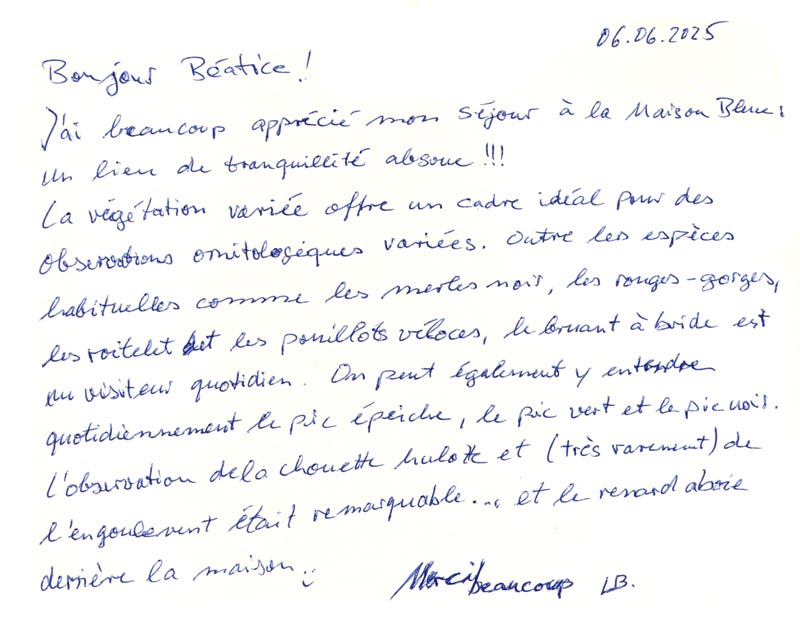 06.06.2025
Bonjour Béatice!
J'ai beaucoup apprécié mon séjour à la Maison Bleue:
un lieu de tranquillité absoue !!!
La végétation variée offre un cadre idéal pour des
observations ornitologiques variées. Outre les espèces
habituelles comme les merles noir, les rouges-gorges,
les roitelet et les pouillots véloces, le bruant à bride est
un visiteur quotidien. On peut également y entendre
quotidiennement le pic épeiche, le pic vert et le pic noir.
L'observation de la chouette hulotte et (très rarement) de
l'engoulevent était remarquable... et le renard aboie
derrière la maison.
Merci beaucoup LB.